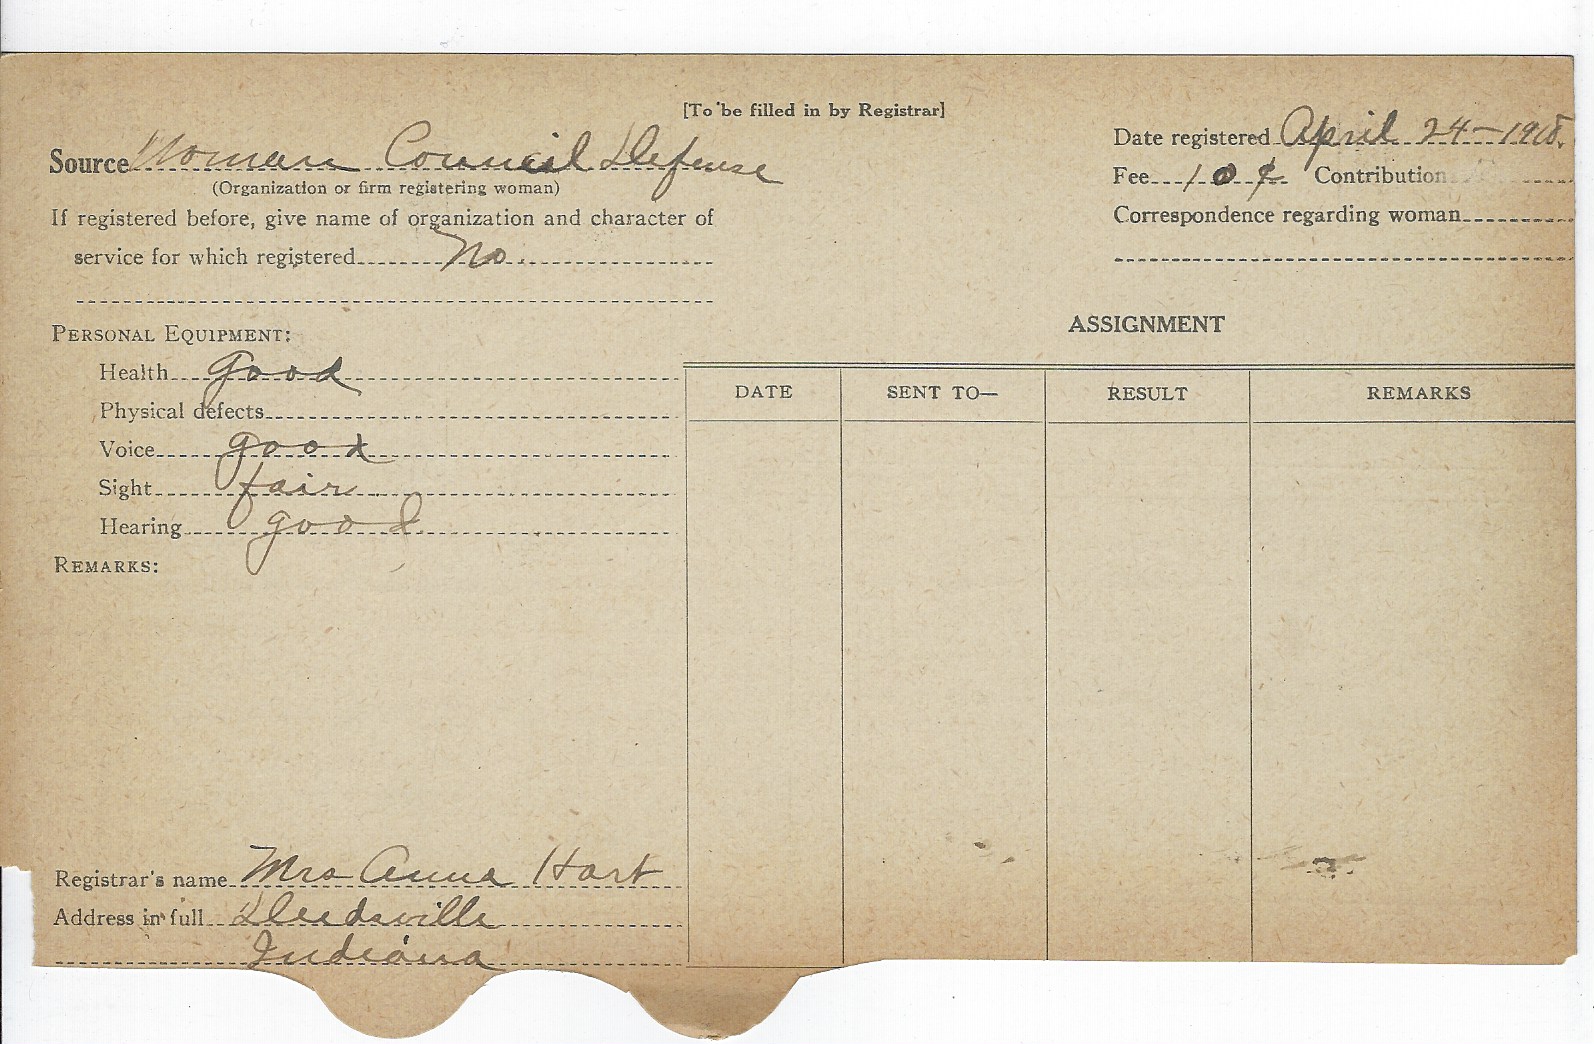 [To be filled in by Registrar]
Source Woman Council Defense
(Organization or firm registering woman)
If registered before, give name of organization and character of
service for which registered No
Date registered April 24-1918.
Fee 10¢ Contribution
Correspondence regarding woman
PERSONAL EQUIPMENT:
Health good
Physical defects
Voice good
Sight fair
Hearing good
REMARKS:
ASSIGNMENT
DATE SENT TO— RESULT REMARKS
Registrar's name Mrs Anna Hart
Address in full Deedsville
Indiana